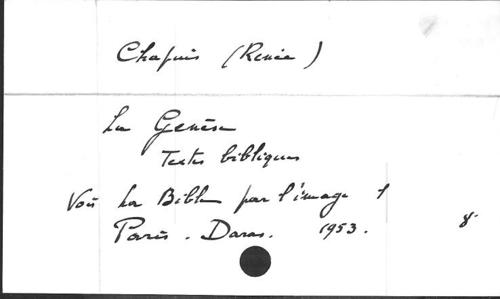 Chapuis (Renée)
La Genèse
Textes bibliques
Voir La Bible par l'image 1
Paris. Daras. 1953. 8°